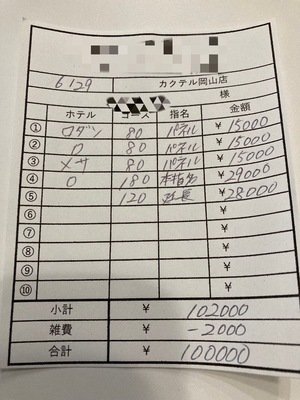 6/29 カクテル岡山店
様
ホテル コース 指名 金額
① ロダン 80 パネル ¥15000
② D 80 パネル ¥15000
③ メサ 80 パネル ¥15000
④ O 180 本指名 ¥29000
⑤ 120 延長 ¥28000
⑥ ¥
⑦ ¥
⑧ ¥
⑨ ¥
⑩ ¥
小計 ¥ 102000
雑費 ¥ -2000
合計 ¥ 100000